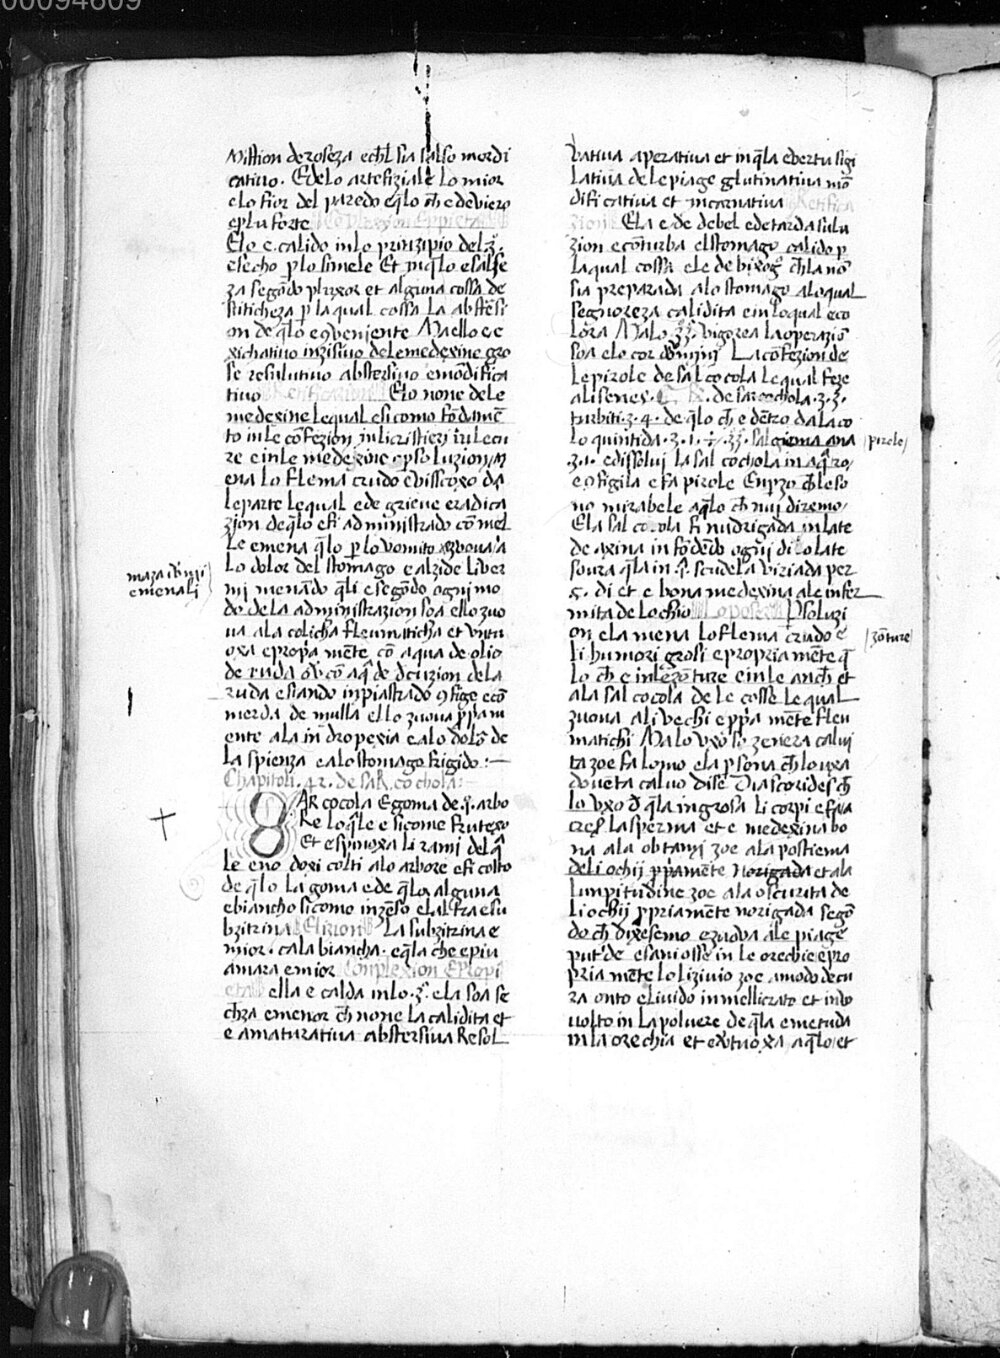 00094609
Mistion de roseza e ch̄l sia salso mordi
cativo. E delo artefiziale lo mior
e lo fior del paredo e q̄lo ch̄ e de viero
e plu forte Complexion e ppieta
Elo e calido in lo prinzipio del .3̊.
e secho p̱ lo simele Et in q̄lo e salse
za segōdo pluxor et alguna cossa de
stiticheza p̱ la qual cossa la abstersi
on de q̄lo e 9veniente Ma ello e e
xichativo inzisivo dele medexine gro
se resulutivo abstersivo e mōdifica
tivo Retificazion Elo none dele
medexine le qual e si como fōdamē
to in le cōfezion in li cristieri in lecu
re e in le medexine e p̱soluzion, M
ena lo flema crudo e viscoxo da
le parte le qual e de grieve eradica
zion de q̄lo e fi administrado cō mel
le e mena q̄lo p̱ lo vomito e zova a
lo dolor del stomago e alzide li ver
mi menādo q̄li e segōdo ogni mo
do de la administrazion soa ello zuo
va ala colicha fleumaticha et vntu
oxa e propa mēte cō aqua de olio
de ruda ov̄ cō aq̄ de dcuzion de la
ruda e siando inpiastrado 9 fige e cō
merda de mulla ello zuova p̱pam
ente ala indropexia e alo dolō de
la spienza e alo stomago frigido :—
Chapitoli .42. de saR. cochola:-
SAR cocola E goma de .j. arbo
Re lo q̄le e si como frutexo
Et espinoxa li rami del q̄
le eno doxi colti alo arbore e fi colto
de q̄lo la goma e de q̄la alguna
e biancho si como inzēso e laltra e su
bzitrina Elizion La subzitrina e
mior. e ala biancha. e q̄la che e piu
amara e mior Complexion e Propi
eta ella e calda in lo .3̊. e la soa se
cheza e menor ch̄ none la calidita et
e amaturativa abstersiva Resol
vativa aperativa et in q̄la e vertu sigi
lativa de le piage glutinativa mō
dificativa et incarnativa Retifica
zion Ela e de debel e de tarda sulu
zion e cōturba el stomago calido p̱
la qual cossa el e de bixog̊ ch̄ la nō
sia preparada alo stomago alo qual
segnoreza calidita e in lo qual e co
lora Ma lo .33. vigorea la operaziō
soa e lo cor dōmini La cōfezion de
le pirole de sal cocola le qual fexe
alisenes. R. de sarcochola .3.3.
turbiti .3.4. de q̄lo ch̄ e dētro da la co
loquintida .3.1. ÷ .33. sal giema ana
.3.1. e dissolvi la sal cochola in aq̄ ro,
e 9figila e fa pirole E up̱zo ch̄ le so
no mirabele a q̄lo ch̄ nuj diremo,
E la sal cocola fi nudrigada in late
de axina in fōdedo ogni di lo late
soura q̄la in .j. scudela viriada per
.5. di et e bona medexina ale infer
mita de lochio Lo poste P̱soluzi
on e la mena lo flema crudo e
li humori grosi e propria mēte q̄
lo ch̄ e in le zōture e in le anch̄ et
ala sal cocola de le cosse le qual
zuova ali vechi e ppa mēte fleu
matichi Ma lo vxo so zenera calvi
ta zoe fa lomo e la p̱sona ch̄ lo uxa
dovēta calvo dise Diascorides ch̄
lo vxo d̄ q̄la ingrosa li corpi e fa a
creser la sperma et e medexina bo
na ala obtanxi zoe ala postiema
de li ochij p̱pamēte norigada et ala
lunpitudine zoe ala oscurita de
li ochij p̱priamēte norigada segō
do ch̄ dixesemo e zuova ale piage
put'de e sani osse in le orechie e pro
pria mēte lo lizivio zoe a modo de cu
ra onto e livido in mellicrato et in vo
volto in la polvere de q̄la e metuda
in la orechia et ex̄tuoxa a q̄lo et
maza vermi
e menali
pirole
zōture